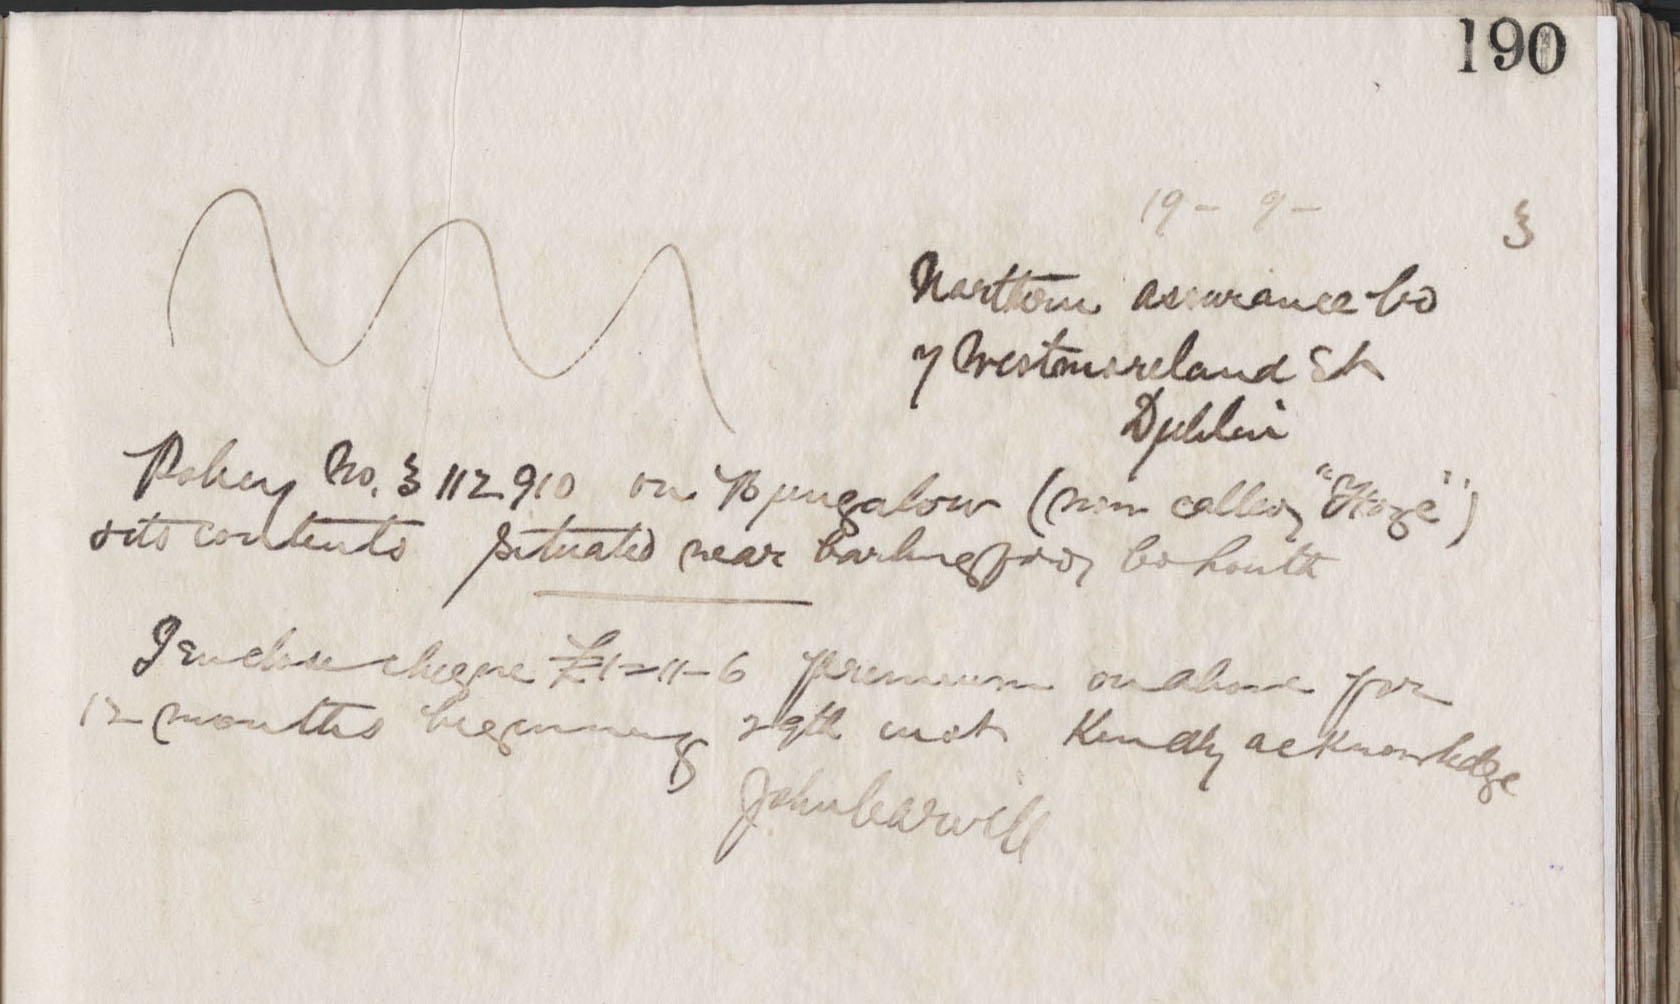 190
19 - 9 - 3
Northern Assurance Co
7 Westmoreland St
Dublin
Policy No. 3112910 on Bungalow (now called "
& its contents situated near Carlingford Co Louth
I enclose cheque £1-11-6 premium on above for
12 months beginning 29th inst Kindly acknowledge
John Carvill